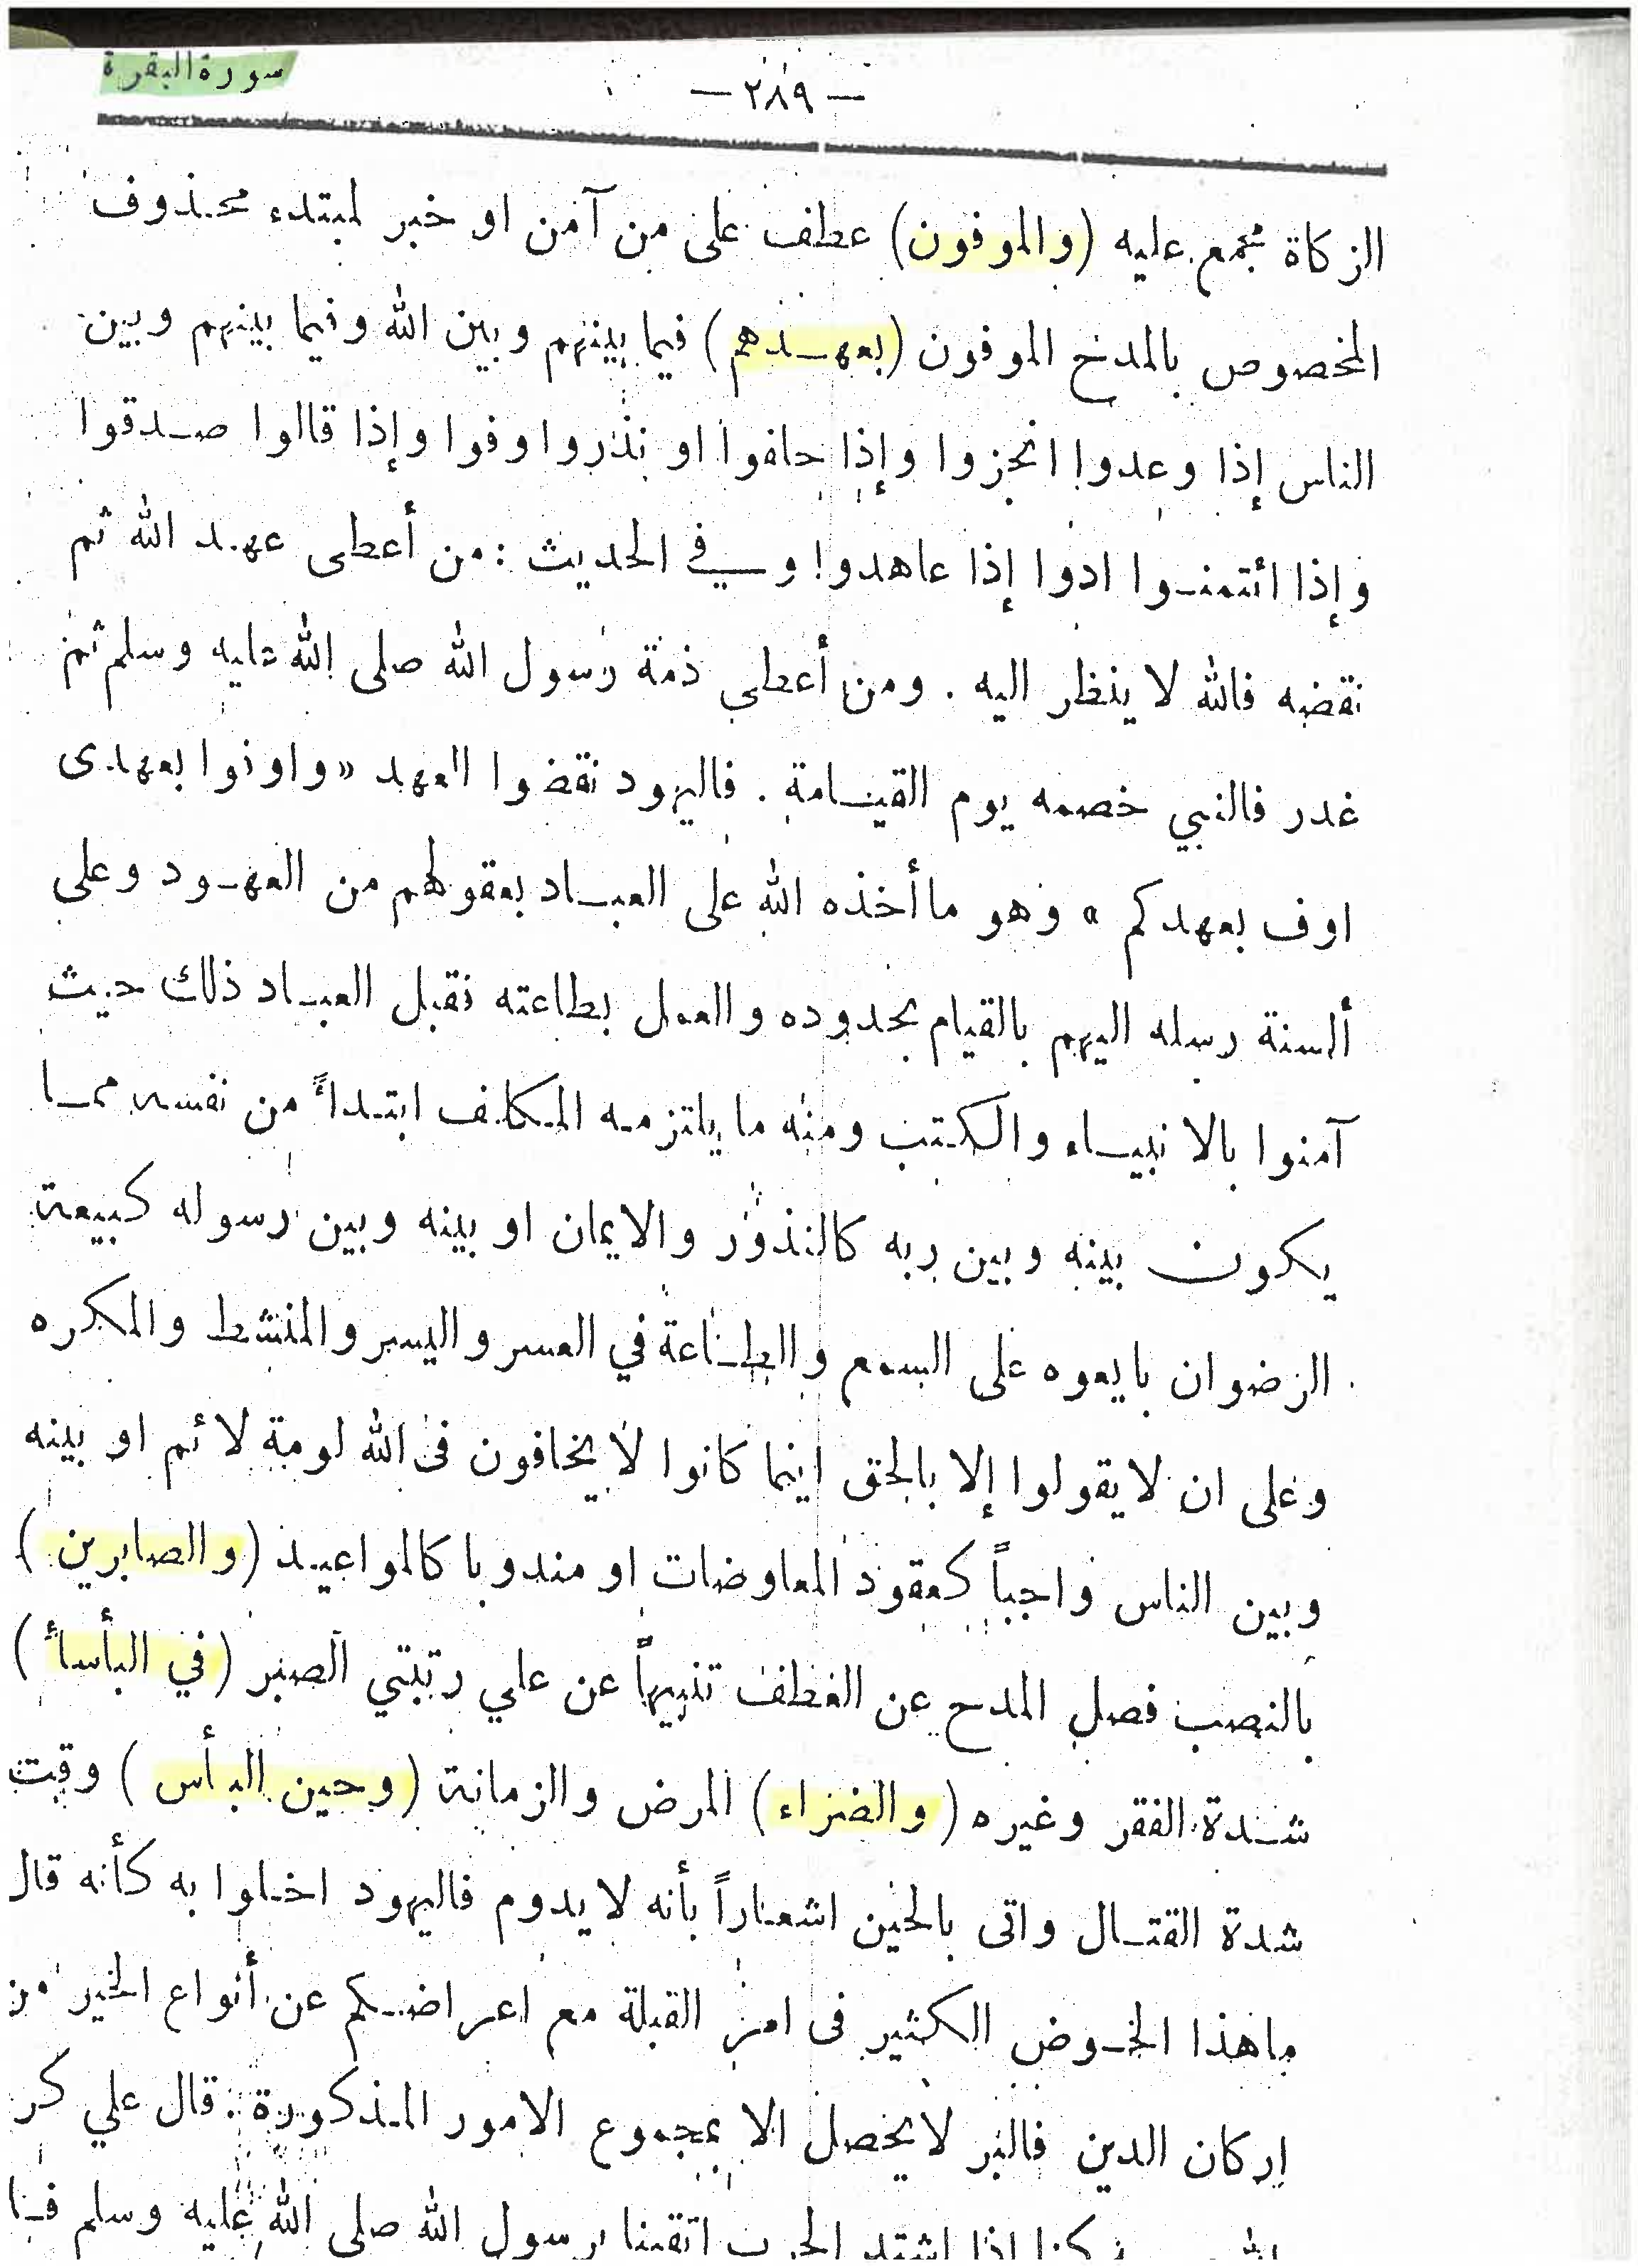 سورة البقرة
— ٢٨٩ —
الزكاة مجمع عليه (والموفون) عطف على من آمن او خبر لمبتدء محذوف
المخصوص بالمدح الموفون (بعهدهم) فيما بينهم وبين الله وفيما بينهم وبين
الناس إذا وعدوا انجزوا وإذا حلفوا او نذروا وفوا وإذا قالوا صدقوا
وإذا ائتمنوا ادوا إذا عاهدوا وفي الحديث : من أعطى عهد الله ثم
نقضه فالله لا ينظر اليه . ومن أعطى ذمة رسول الله صلى الله عليه وسلم ثم
غدر فالنبي خصمه يوم القيامة . فاليهود نقضوا العهد «واوفوا بعهدى
اوف بعهدكم» وهو ما أخذه الله على العباد بعقولهم من العهود وعلى
ألسنة رسله اليهم بالقيام بحدوده والعمل بطاعته نقبل العباد ذلك حيث
آمنوا بالانبياء والكتب ومنه ما يلتزمه المكلف ابتداً من نفسه مما
يكون بينه وبين ربه كالنذور والايمان او بينه وبين رسوله كبيعة
الرضوان بايعوه على السمع والطاعة في العسر واليسر والمنشط والمكره
وعلى ان لا يقولوا إلا بالحق اينما كانوا لا يخافون فى الله لومة لائم او بينه
وبين الناس واجباً كعقود المعاوضات او مندوبا كالمواعيد (والصابرين)
بالنصب فصل المدح عن العطف تنبيهاً عن علي رتبتي الصبر (في البأسأ)
شدة الفقر وغيره (والضراء) المرض والزمانة (وحين البأس) وقت
شدة القتال واتى بالحين اشعاراً بأنه لا يدوم فاليهود اخلوا به كأنه قال
ما هذا الخوض الكثير فى امر القبلة مع اعراضكم عن أنواع الخير من
اركان الدين فالبر لا يحصل الا بمجموع الامور المذكورة : قال علي كر
كنا إذا اشتد الحرب اتقينا برسول الله صلى الله عليه وسلم فما